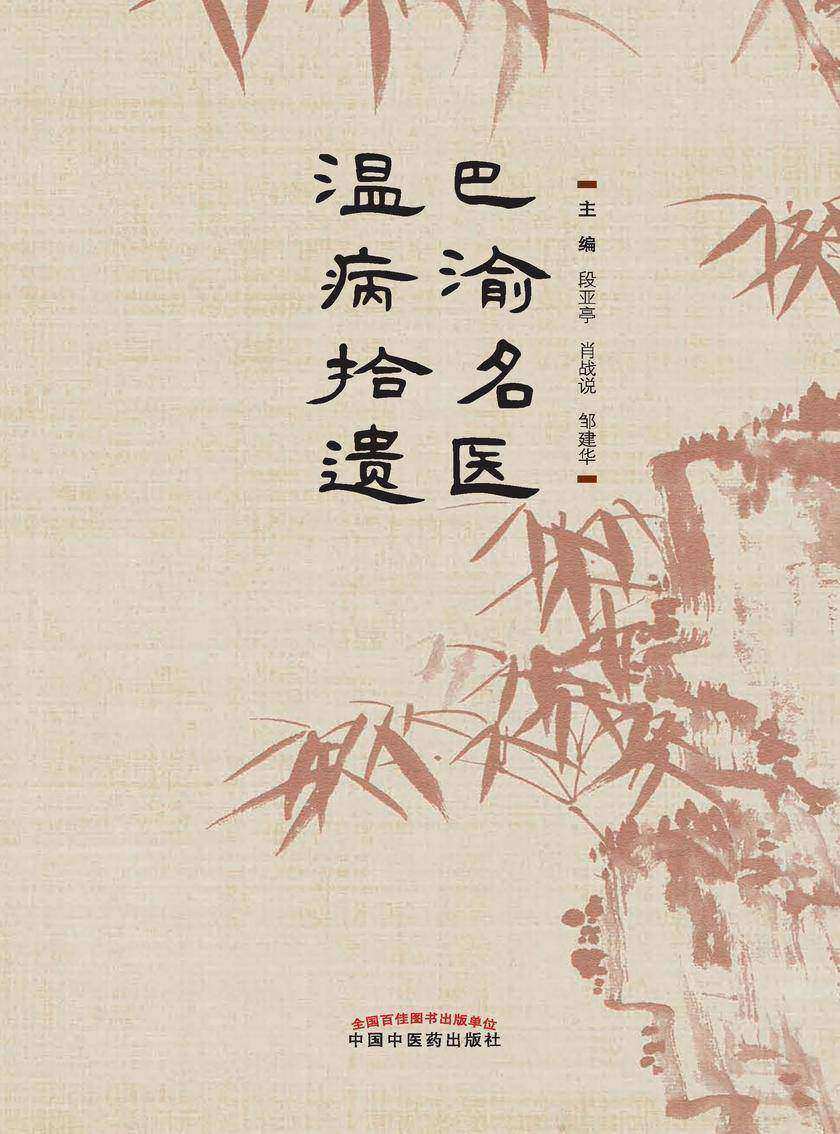 主 编 段亚亭 肖战说 邹建华
巴渝名医
温病拾遗
全国百佳图书出版单位
中国中医药出版社